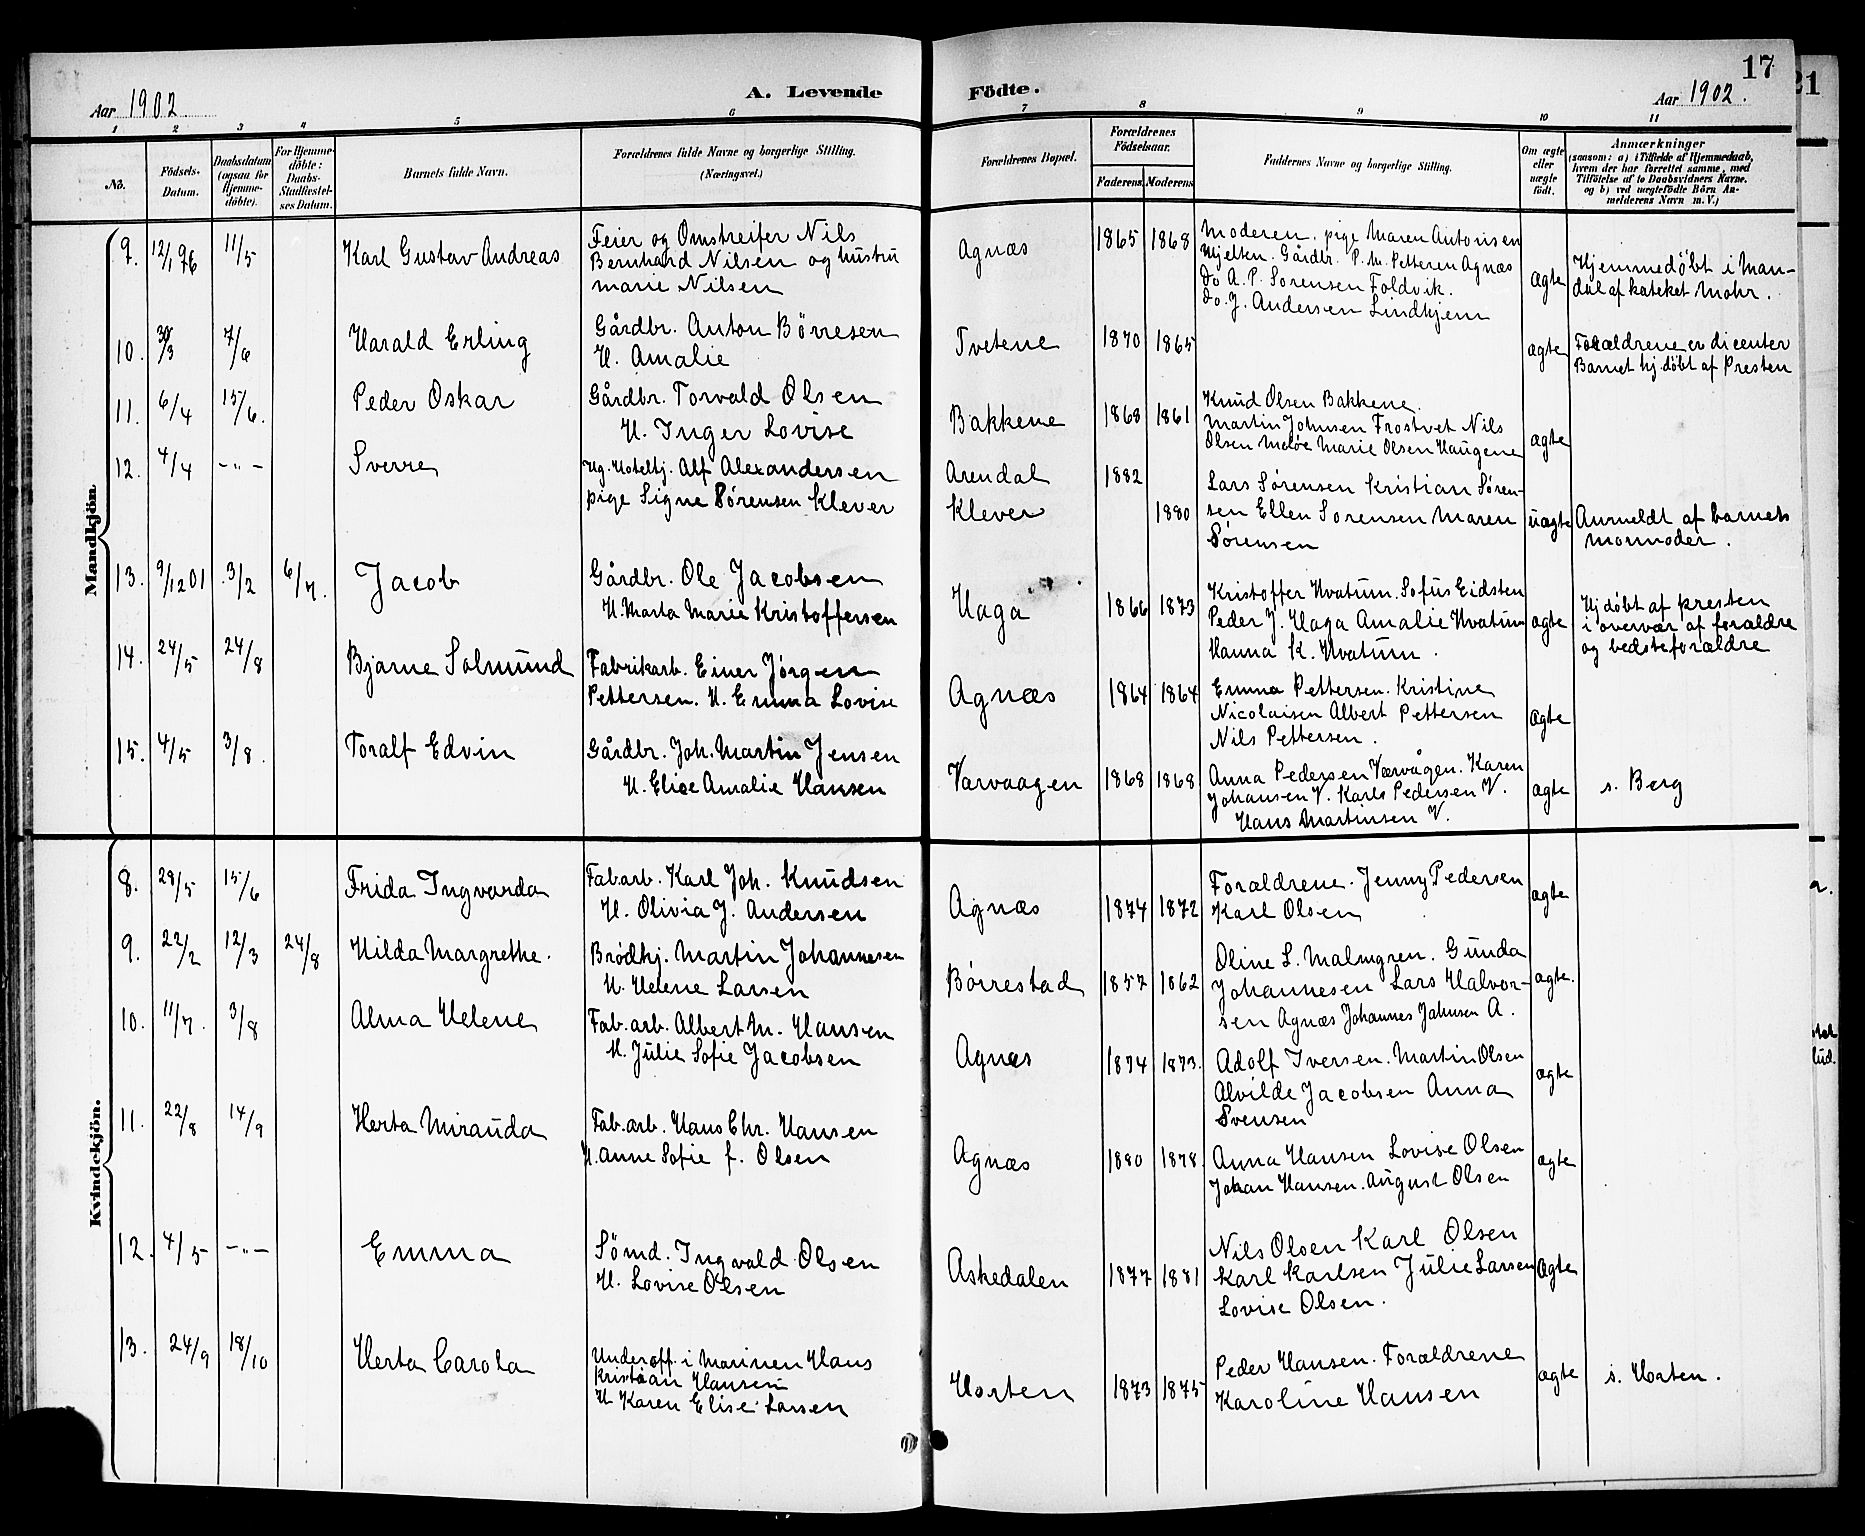 17
21
Aar 1902
A. Levende
Födte.
Aar 1902.
1 2 3 4 5 6 7 8 9 10 11
No.
Födsels-
Datum.
Daabsdatum
(ogsaa for
Hjemme-
döbte).
For Hjemme-
döbte:
Daabs-
Stadfæstel-
ses Datum.
Barnets fulde Navn.
Forældrenes fulde Navne og borgerlige Stilling.
(Næringsvei.)
Forældrenes Bopæl.
Forældrenes
Födselsaar.
Faderens. Moderens.
Faddernes Navne og borgerlige Stilling.
Om ægte
eller
uægte
födt.
Anmærkninger
(saasom: a) i Tilfælde af Hjemmedaab,
hvem der har forrettet samme, med
Tilföielse af to Daabsvidners Navne,
og b) ved uægtefödte Börn An-
melderens Navn m. V.)
Mandkjön
9. 12/1 96 11/5 Karl Gustav Andreas
Feier og Omstreifer Nils
Bernhard Nilsen og hustru
Marie Nilsen
Agnæs 1865 1868
Moderen. pige Maren Antonsen
Hjelten. Gårdbr. P. M. Petteren Agnæs
do A. P. Sorensen Foldvik.
do. J. Andersen Lindhjem
ægte
Hjemmedøbt i Man-
dal af kateket Mohr.
10. 30/3 7/6 Harald Erling
Gårdbr. Anton Börresen
H. Amalie
Tvetene 1870 1865
ægte
Forældrene er dicenter
Barnet hj. döbt af Presten
11. 6/4 15/6. Peder Oskar
Gårdbr. Torvald Olsen
H. Inger Lovise
Bakkene 1868 1861
Knud Olsen Bakkene.
Martin Johnsen Frostvet Nils
Olsen Meløe Marie Olsen Haugene
ægte
12. 4/4 -"- Sverre
Ug. Hotelhj. Alf Alexandersen
pige Signe Sørensen Klever
Arendal 1882
Klever 1880
Lars Sørensen Kristian Søren-
sen Ellen Sorensen Maren
Sørensen
uægte
Anmeldt af barnets
mormoder.
13. 9/12 01 3/2 6/7. Jacob
Gårdbr. Ole Jacobsen
H. Marta Marie Kristoffersen
Haga 1866 1873
Kristoffer Hvatum. Sofus Eidsten
Peder J. Haga Amalie Hvatum
Hanna K. Hvatum.
ægte
Hj døbt af presten
i overvær af forældre
og bedsteforældre
14. 24/5 24/8 Bjarne Solmund
Fabrikarb. Einer Jörgen
Pettersen. H. Emma Lovise
Agnæs 1864 1864
Emma Pettersen. Kristine
Nicolaisen Albert Pettersen
Nils Pettersen.
ægte
15. 4/5 3/8. Toralf Edvin
Gårdbr. Joh. Martin Jensen
H. Elise Amalie Hansen
Varvaagen 1868 1868
Anna Pedersen Værvågen. Karen
Johansen V. Karls Pedersen V.
Hans Martinsen V.
ægte
s. Berg
Kvindekjön.
8. 28/5 15/6 Frida Ingvarda
Fab.arb. Karl Joh. Knudsen
H. Olivia J. Andersen
Agnæs 1874 1872
Forældrene. Jenny Pedersen
Karl Olsen
ægte
9. 22/2 12/3 24/8 Hilda Margrethe.
Brödhj. Martin Johannesen
H. Helene Larsen
Börrestad 1857 1862
Oline L. Malmgren. Gunda
Johannesen Lars Halvor-
sen Agnæs Johannes Johnsen A.
ægte.
10. 11/7. 3/8 Alma Helene
Fab. arb. Albert M. Hansen
H. Julie Sofie Jacobsen
Agnæs 1874 1873.
Adolf Iversen. Martin Olsen
Alvilde Jacobsen Anna
Svensen
ægte
11. 22/8 14/9 Herta Miranda
Fab.arb. Hans Chr. Hansen
H. Anne Sofie f. Olsen
Agnæs 1880 1878.
Anna Hansen Lovise Olsen
Johan Hansen. August Olsen
ægte
12. 4/5 -"- Emma
Sömd. Ingvald Olsen
H. Lovise Olsen
Askedalen 1877 1881
Nils Olsen Karl Olsen
Karl Karlsen Julie Larsen
Lovise Olsen.
ægte
13. 24/9 18/10 Herta Carola
Underoff. i Marinen Hans
Kristian Hansen
H. Karen Elise Larsen
Horten 1873 1875
Peder Hansen. Forældrene
Karoline Hansen
ægte
s. Horten.